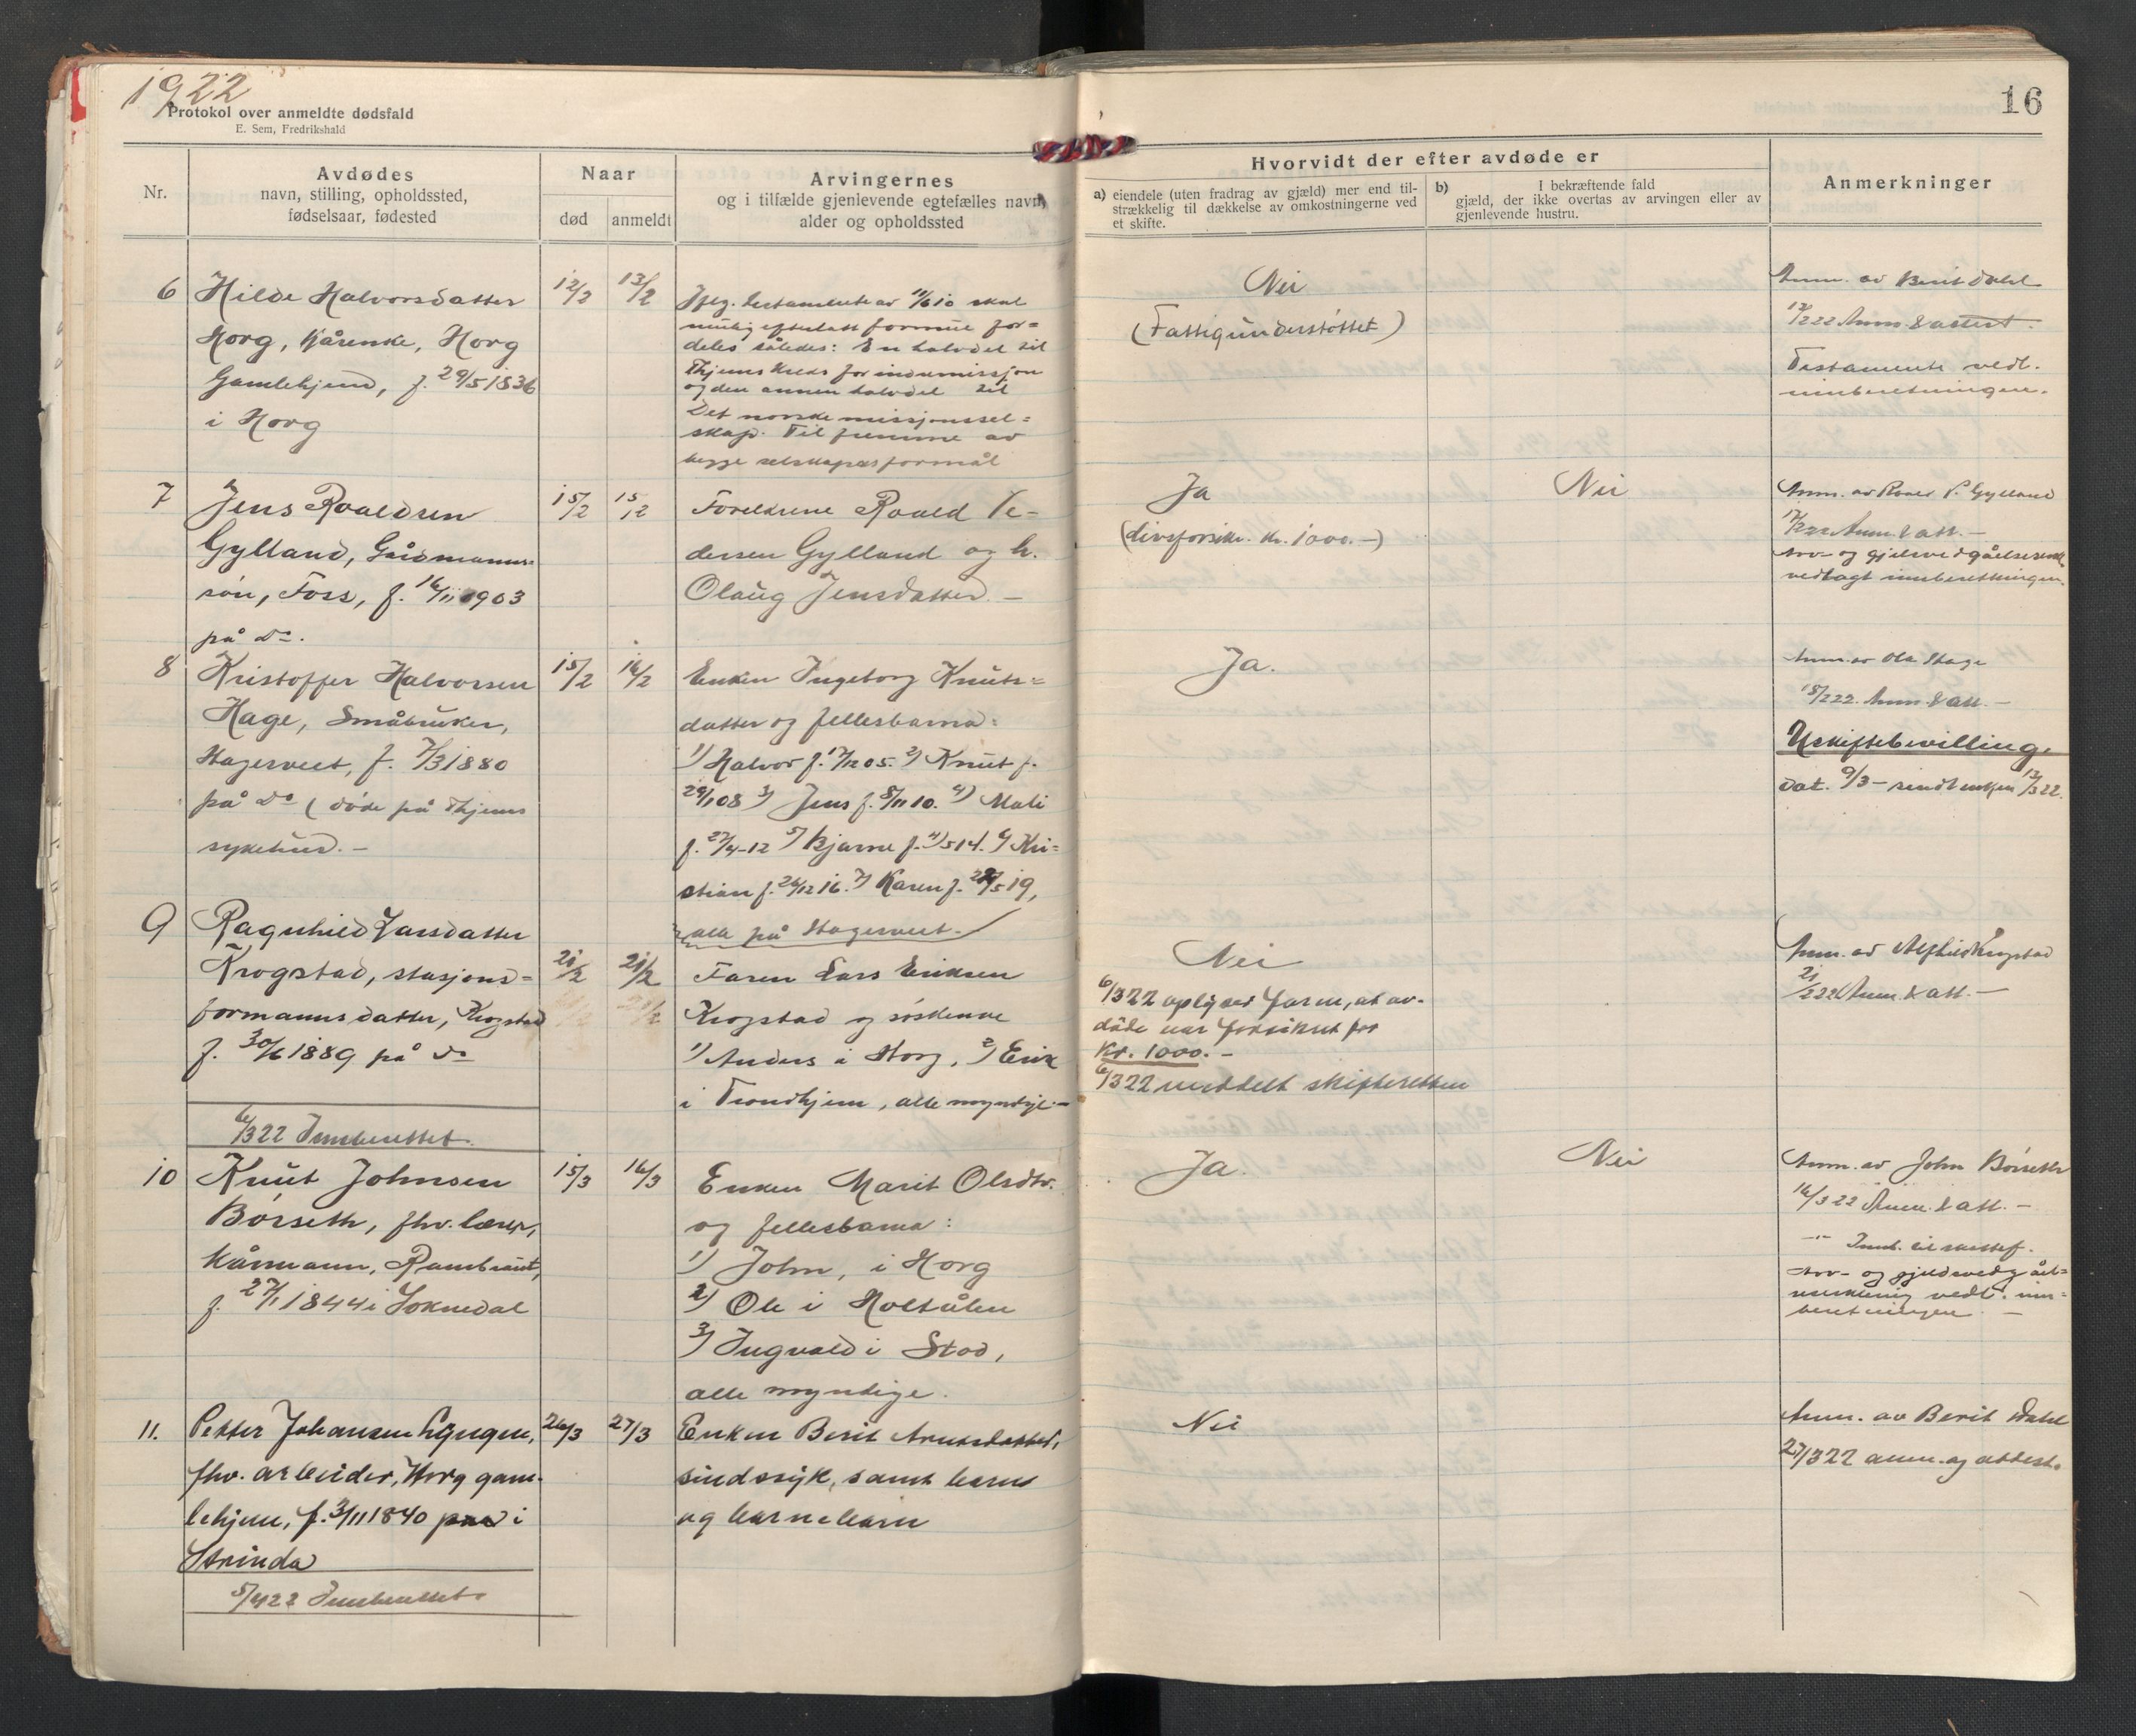 1922
Protokol over anmeldte dødsfald
E. Sem, Fredrikshald
16
Nr.
Avdødes
navn, stilling, opholdssted,
fødselsaar, fødested
Naar
død
anmeldt
Arvingernes
og i tilfælde gjenlevende egtefælles navn,
alder og opholdssted
Hvorvidt der efter avdøde er
a) eiendele (uten fradrag av gjæld) mer end til-
strækkelig til dækkelse av omkostningerne ved
et skifte.
b) I bekræftende fald
gjæld, der ikke overtas av arvingen eller av
gjenlevende hustru.
Anmerkninger
6
Hilde Halvorsdatter
Horg, Kårenke, Horg
Gamlehjem, f. 29/5 1836
i Horg
12/2
13/2
Iflg. testamente av 11/6 10 skal
mulig efterlatt formue for=
deles således: En halvdel til
Thjems kreds for indremissjon
og den annen halvdel til
Det norske missjonssel=
skap. Til fremme av
begge selskapers formål
Nei
(Fattigunderstøttet)
Anm. av Berit Dahl
13/2 22 Anm. & attest.
Testamente vedl.
innberetningen.
7
Jens Roaldsen
Gylland, Gårdmanns=
søn, Foss, f. 16/11 1903
på do.
15/2
15/2
Foreldrene Roald Pe-
dersen Gylland og h.
Olaug Jensdatter. -
Ja
(Livsforsikr. kr. 1000. -)
Nei
Anm. av Roald P. Gylland
17/2 22 Anm. & att. -
Arv- og gjelsvedgåelseserkl.
vedlagt innberetningen.
8
Kristoffer Halvorsen
Hage, Småbruker,
Hagerveet, f. 7/3 1880
på do (døde på Thjems
sykehus. -
15/2
16/2
Enken Ingeborg Knuts=
datter og fellesbarna:
1) Halvor f. 17/12 05. 2) Knut f.
29/1 08 3) Jens f. 8/11 10. 4) Mali
f. 27/4-12 5) Bjarne f. 11/5 14. 6) Kri=
stian f. 26/12 16. 7) Karen f. 28/5 19,
alle på Hagerveet.
Ja.
Anm. av Ola Hage
18/2 22. Anm. & att. -
Uskiftebevilling,
dat. 9/3 - sendt enken 13/3 22.
9
Ragnhild Larsdatter
Krogstad, stasjons=
formanns datter, Krogstad
f. 30/6 1889 på do
6/3 22 Innberettet.
21/2
21/2
Faren Lars Eriksen
Krogstad og søskenne
1) Anders i Horg, 2) Erik
i Trondhjem, alle myndige. -
Nei
6/3 22 oplyser faren, at av-
døde var forsikret for
Kr. 1000. -
6/3 22 meddelt skifteretten
Anm. av Alfhild Krogstad
21/2 22 Anm. & att. -
10
Knut Johnsen
Børseth, fhv. lærer,
Kårmann, Rambraut,
f. 27/1 1844 i Soknedal
15/3
16/3
Enken Marit Olsdtr.
og fellesbarna:
1) John, i Horg
2) Ole i Holtålen
3) Ingvald i Stod,
alle myndige.
Ja.
Nei
Anm. av John Børseth
16/3 22 Anm. & att. -
-"- Innb. til skiftef.
Arv- og gjeldsvedgåel=
seserklæring vedl. inn=
beretningen -
11.
Petter Johansen Lyngen,
fhv. arbeider, Horg gam-
lehjem, f. 3/11 1840 i
Strinda
5/4 22 Innberettet.
26/3
27/3
Enken Berit Arntsdatter,
sindssyk, samt barn
og barnebarn
Nei
Anm. av Berit Dahl
27/3 22 anm. og attest.